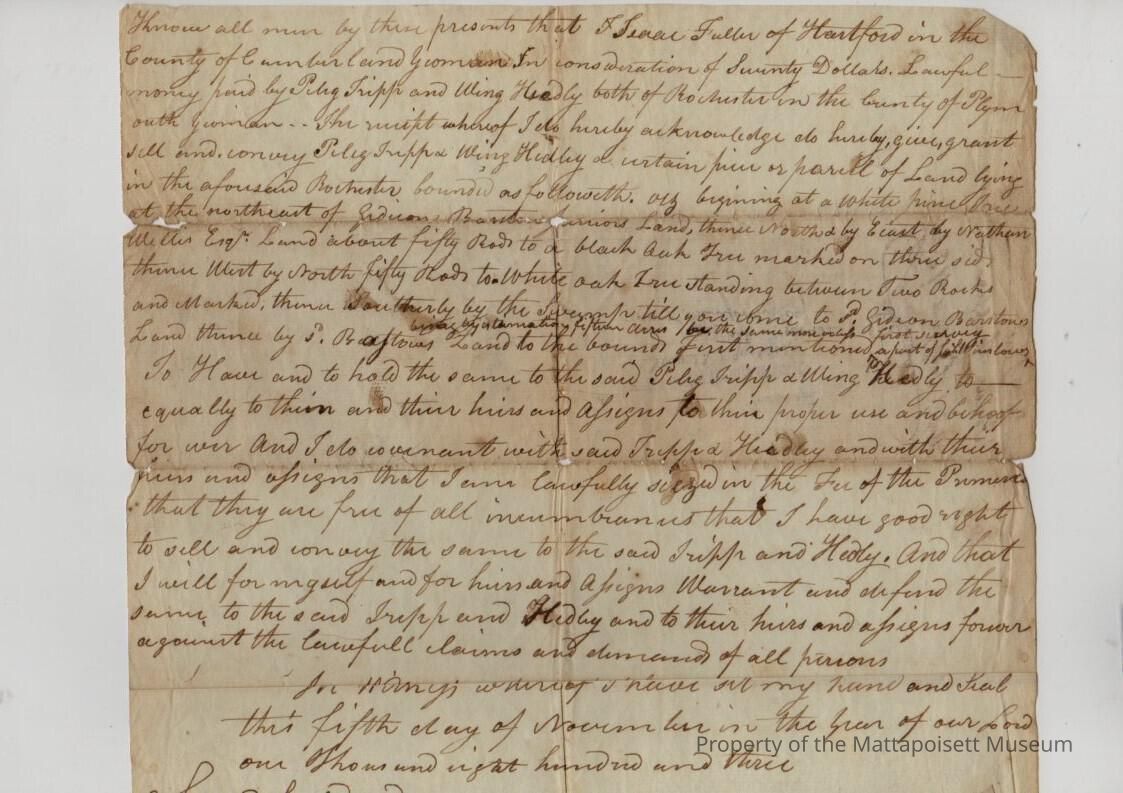 Know all men by these presents that I Isaac Fuller of Hartford in the
County of Cumberland Yeoman In consideration of Seventy Dollars. Lawful
money paid by Peleg Tripp and Wing Hedly both of Rochester in the County of Plym
outh yeoman -- The receipt whereof I do hereby acknowledge do hereby, give, grant
sell and convey Peleg Tripp & Wing Hedley a certain piece or parcell of Land lying
in the aforesaid Rochester bounded as followeth. viz begining at a White pine Tree
at the northeast of Gideon Land, thence North & by East by Nathan
Willis Esqr. Land about fifty Rods to a black Oak Tree marked on three sids
thence West by North fifty Rods to White oak Tree standing between Two Rocks
and Marked, thence Southerly by the Swamp till you come to Sd. Gideon Barstows
by estamation fifteen acres be the same more or less first
Land thence by Sd. Barstows Land to the bounds first mentioned a part of
To Have and to hold the same to the said Peleg Tripp & Wing Hedly to
equally to them and their heirs and Assigns to their proper use and behoof
for ever And I do covenant with said Tripp & Headley and with their
heirs and assigns that I am lawfully seized in the Fee of the Premises
that they are free of all incumbrances that I have good right
to sell and convey the same to the said Tripp and Hedly. And that
I will for myself and for heirs and Assigns Warrant and defend the
same, to the said Tripp and Hedley and to their heirs and assigns forever
against the lawfull claims and demands of all persons
In Witness whereof I have set my hand and Seal
this fifth day of November in the Year of our Lord
one Thousand eight hundred and three
Property of the Mattapoisett Museum